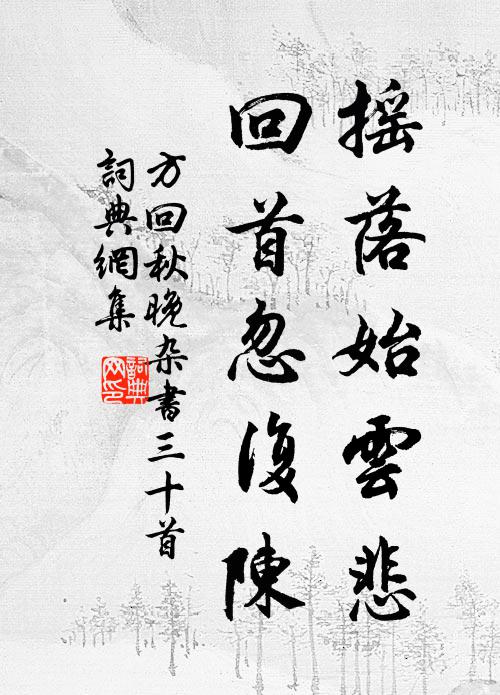 搖落始雲悲
回首忽復陳
方回秋晚杂書三十首
詞典網集
詞典网印